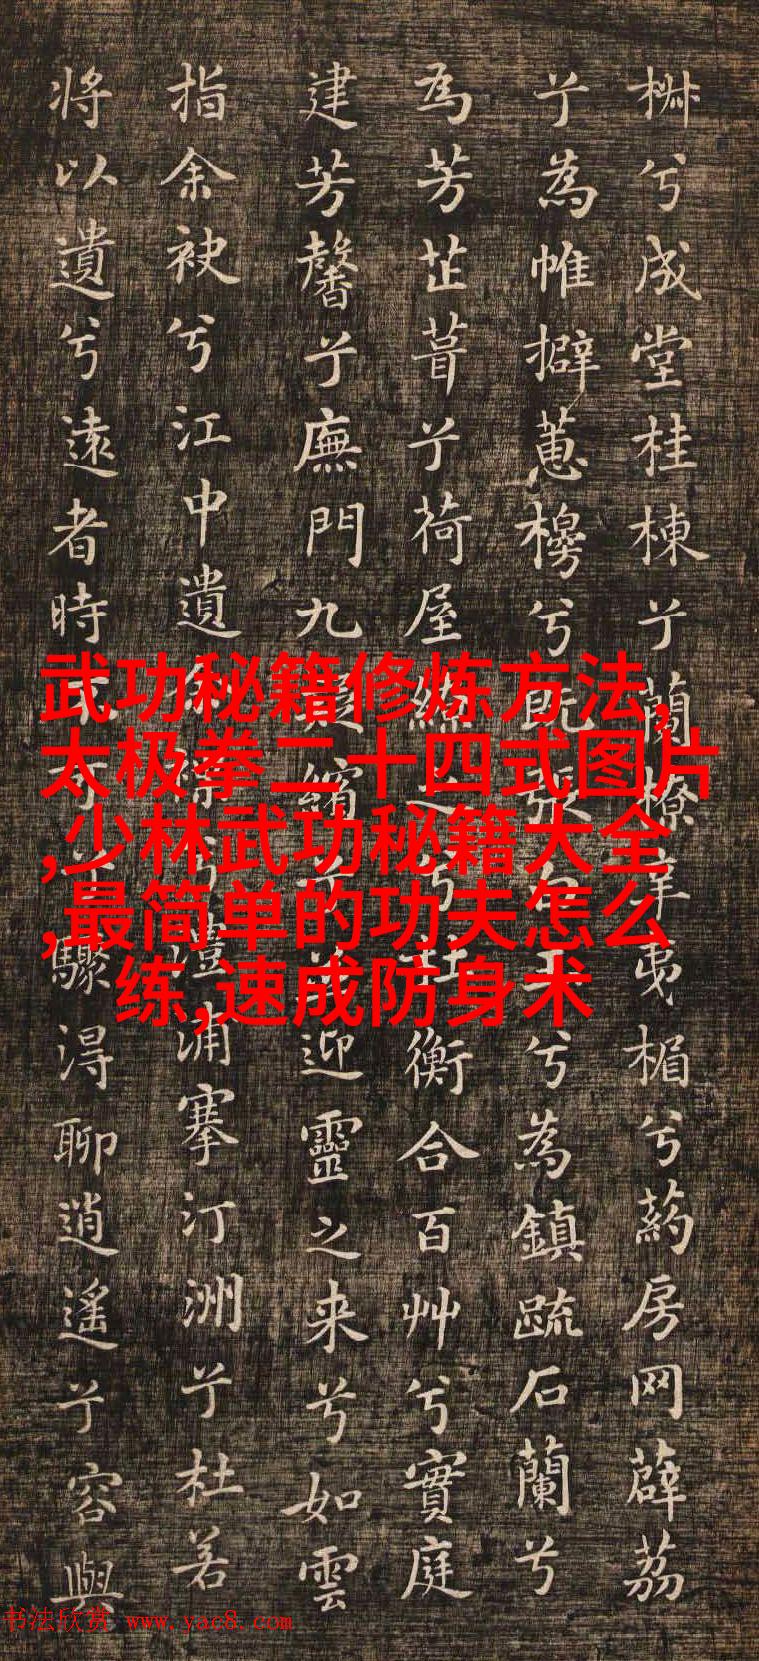 椒兮成堂桂棟兮蘭橑辛夷楣兮葯房网薜荔
兮為帷擗蕙櫋兮既張白玉兮為鎮疏石蘭兮
為芳芷葺兮荷屋繚之兮杜衡合百艸兮實庭
建芳馨兮廡門九繽兮迎靈之来兮如雲
指余袂兮江中遺兮澧浦搴汀洲兮杜若
將以遺兮遠者時不可驟得聊逍遙兮容與
武功秘籍修炼方法,
太极拳二十四式图片
,少林武功秘籍大全
,最简单的功夫怎么
练,速成防身术
书法欣赏 www.yac8.com